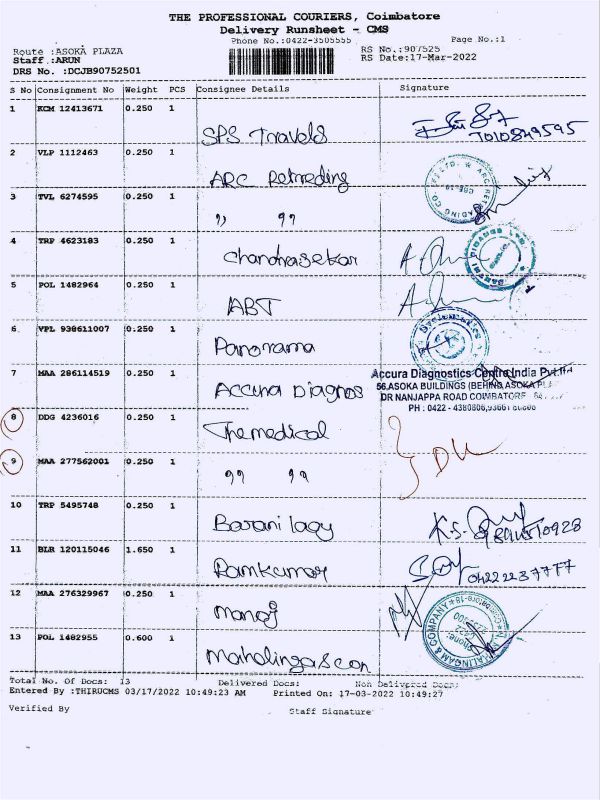 THE PROFESSIONAL COURIERS, Coimbatore
Delivery Runsheet - CMS
Phone No.:0422-3505555 Page No.:1
Route :ASOKA PLAZA RS No.:907525
Staff :ARUN RS Date:17-Mar-2022
DRS No. :DCJB90752501
S No Consignment No Weight PCS Consignee Details Signature
1 KCM 12413671 0.250 1 SPS Travels 7010849595
2 VLP 1112463 0.250 1 ARC Retreding
3 TVL 6274595 0.250 1 " "
4 TRP 4623183 0.250 1 Chandrasekar
5 POL 1482964 0.250 1 ABT
6 VPL 938611007 0.250 1 Panorama
7 MAA 286114519 0.250 1 Accura Diagnos
Accura Diagnostics Centre India Pvt.Ltd
56,ASOKA BUILDINGS (BEHIND ASOKA
DR NANJAPPA ROAD COIMBATORE
PH : 0422 - 4380806,
8 DDG 4236016 0.250 1 The medical
9 MAA 277562001 0.250 1 " "
10 TRP 5495748 0.250 1 Barani lagy K.S.
11 BLR 120115046 1.650 1 Ramkumar 04222237777
12 MAA 276329967 0.250 1 Manoj
13 POL 1482955 0.600 1 Mahalingascon
Total No. Of Docs: 13 Delivered Docs: Non Delivered Docs:
Entered By :THIRUCMS 03/17/2022 10:49:23 AM Printed On: 17-03-2022 10:49:27
Verified By Staff Signature